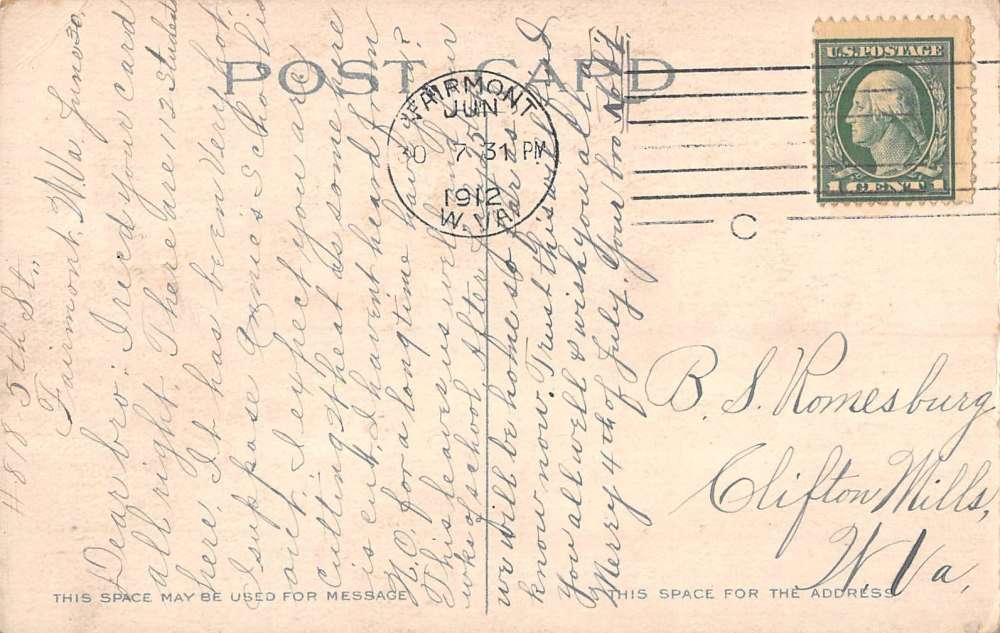 POST CARD
FAIRMONT
JUN
30 7 31 PM
1912
W. VA.
C
U.S. POSTAGE
1 CENT 1
418 5th St.,
Fairmont, W. Va. June 30,
Dear bro: I recd your card
all right. There are 112 students
here. It has been very hot.
I suppose Ernie's school is
out. I expect you are
cutting wheat as some here
is cut. I havent heard from
H. O. for a long time have you?
This leaves us well. only four
wks of school after
we will be home so far as I
know now. Trust this will find
you all well & wish you all a
Merry 4th of July. Your bro
B. S. Romesburg,
Clifton Mills,
W. Va,
THIS SPACE MAY BE USED FOR MESSAGE
THIS SPACE FOR THE ADDRESS